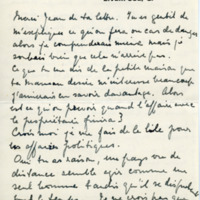 Merci Jean de ta lettre. Tu es gentil de
m'expliquer ce qu'on fera en cas de danger
alors je comprendrai mieux mais j'
souhaite bien que cela n'arrive pas.
Ce que tu me dis de la petite maison que
tu m'intéresse beaucoup
j'aimerais en savoir davantage. Alors
est ce qu'on prévoit quand l'affaire avec
le propriétaire finira?
Crois moi je me fais de la bile pour
les affaires politiques.
Oui tu as raison, un pays vu de
distance semble agir comme un
seul homme tandis qu'il se
tout le temps. Je ne crois pas que